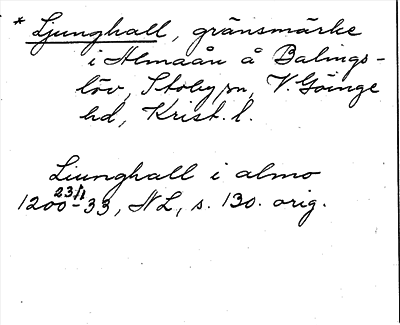 * Ljunghall, gränsmärke
i Almaån å Balings-
löv, Stoby sn, V. Göinge
hd, Krist. l.
Liunghall i almo
23/1
1200-33, NL, s. 130. orig.